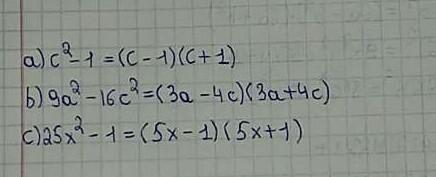 a) c²-1=(c-1)(c+1)
b) 9a²-16c²=(3a-4c)(3a+4c)
c) 25x²-1=(5x-1)(5x+1)